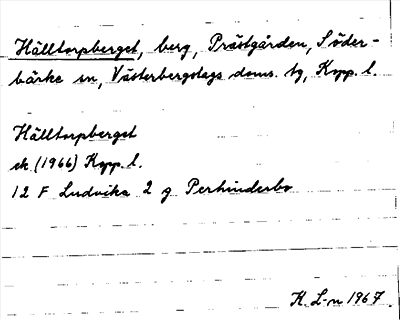 Hälltorpberget, berg, Prästgården, Söder-
bärke sn, Västerbergslags doms. tg, Kopp. l.
Hälltorpberget
ek (1966) Kopp. l.
12 F Ludvika 2 g Perhindersbo
K. L-n 1967.